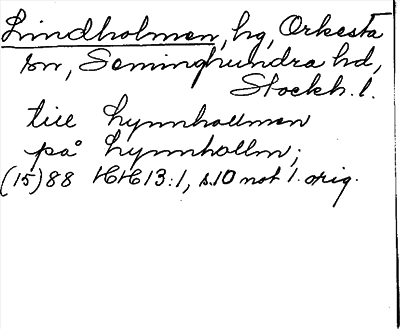 Lindholmen, hg, Orkesta
sn, Seminghundra hd,
Stockh. l.
till lynnhollmen
på lynnhollm;
(15)88 HH 13:1, s.10 not 1. orig.